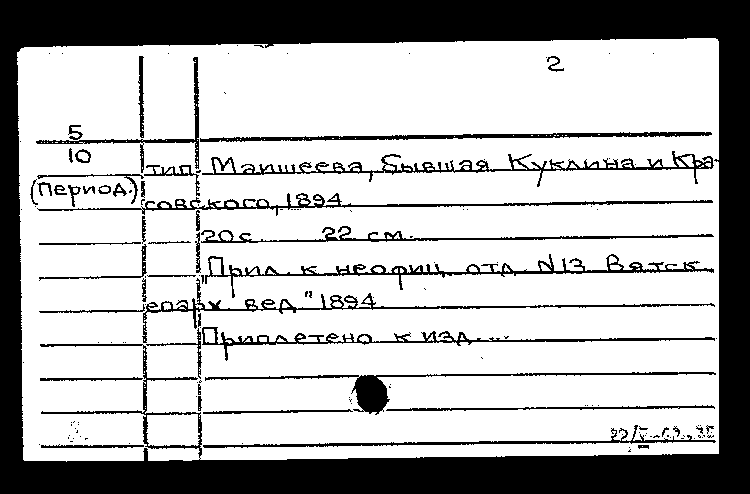 2
5
10
(Период.)
тип. Маишеева, бывшая Куклина и Кра-
совского, 1894.
20 с. 22 см.
"Прил. к неофиц. отд. N 13 Вятск.
епарх. вед." 1894.
Приплетено к изд....